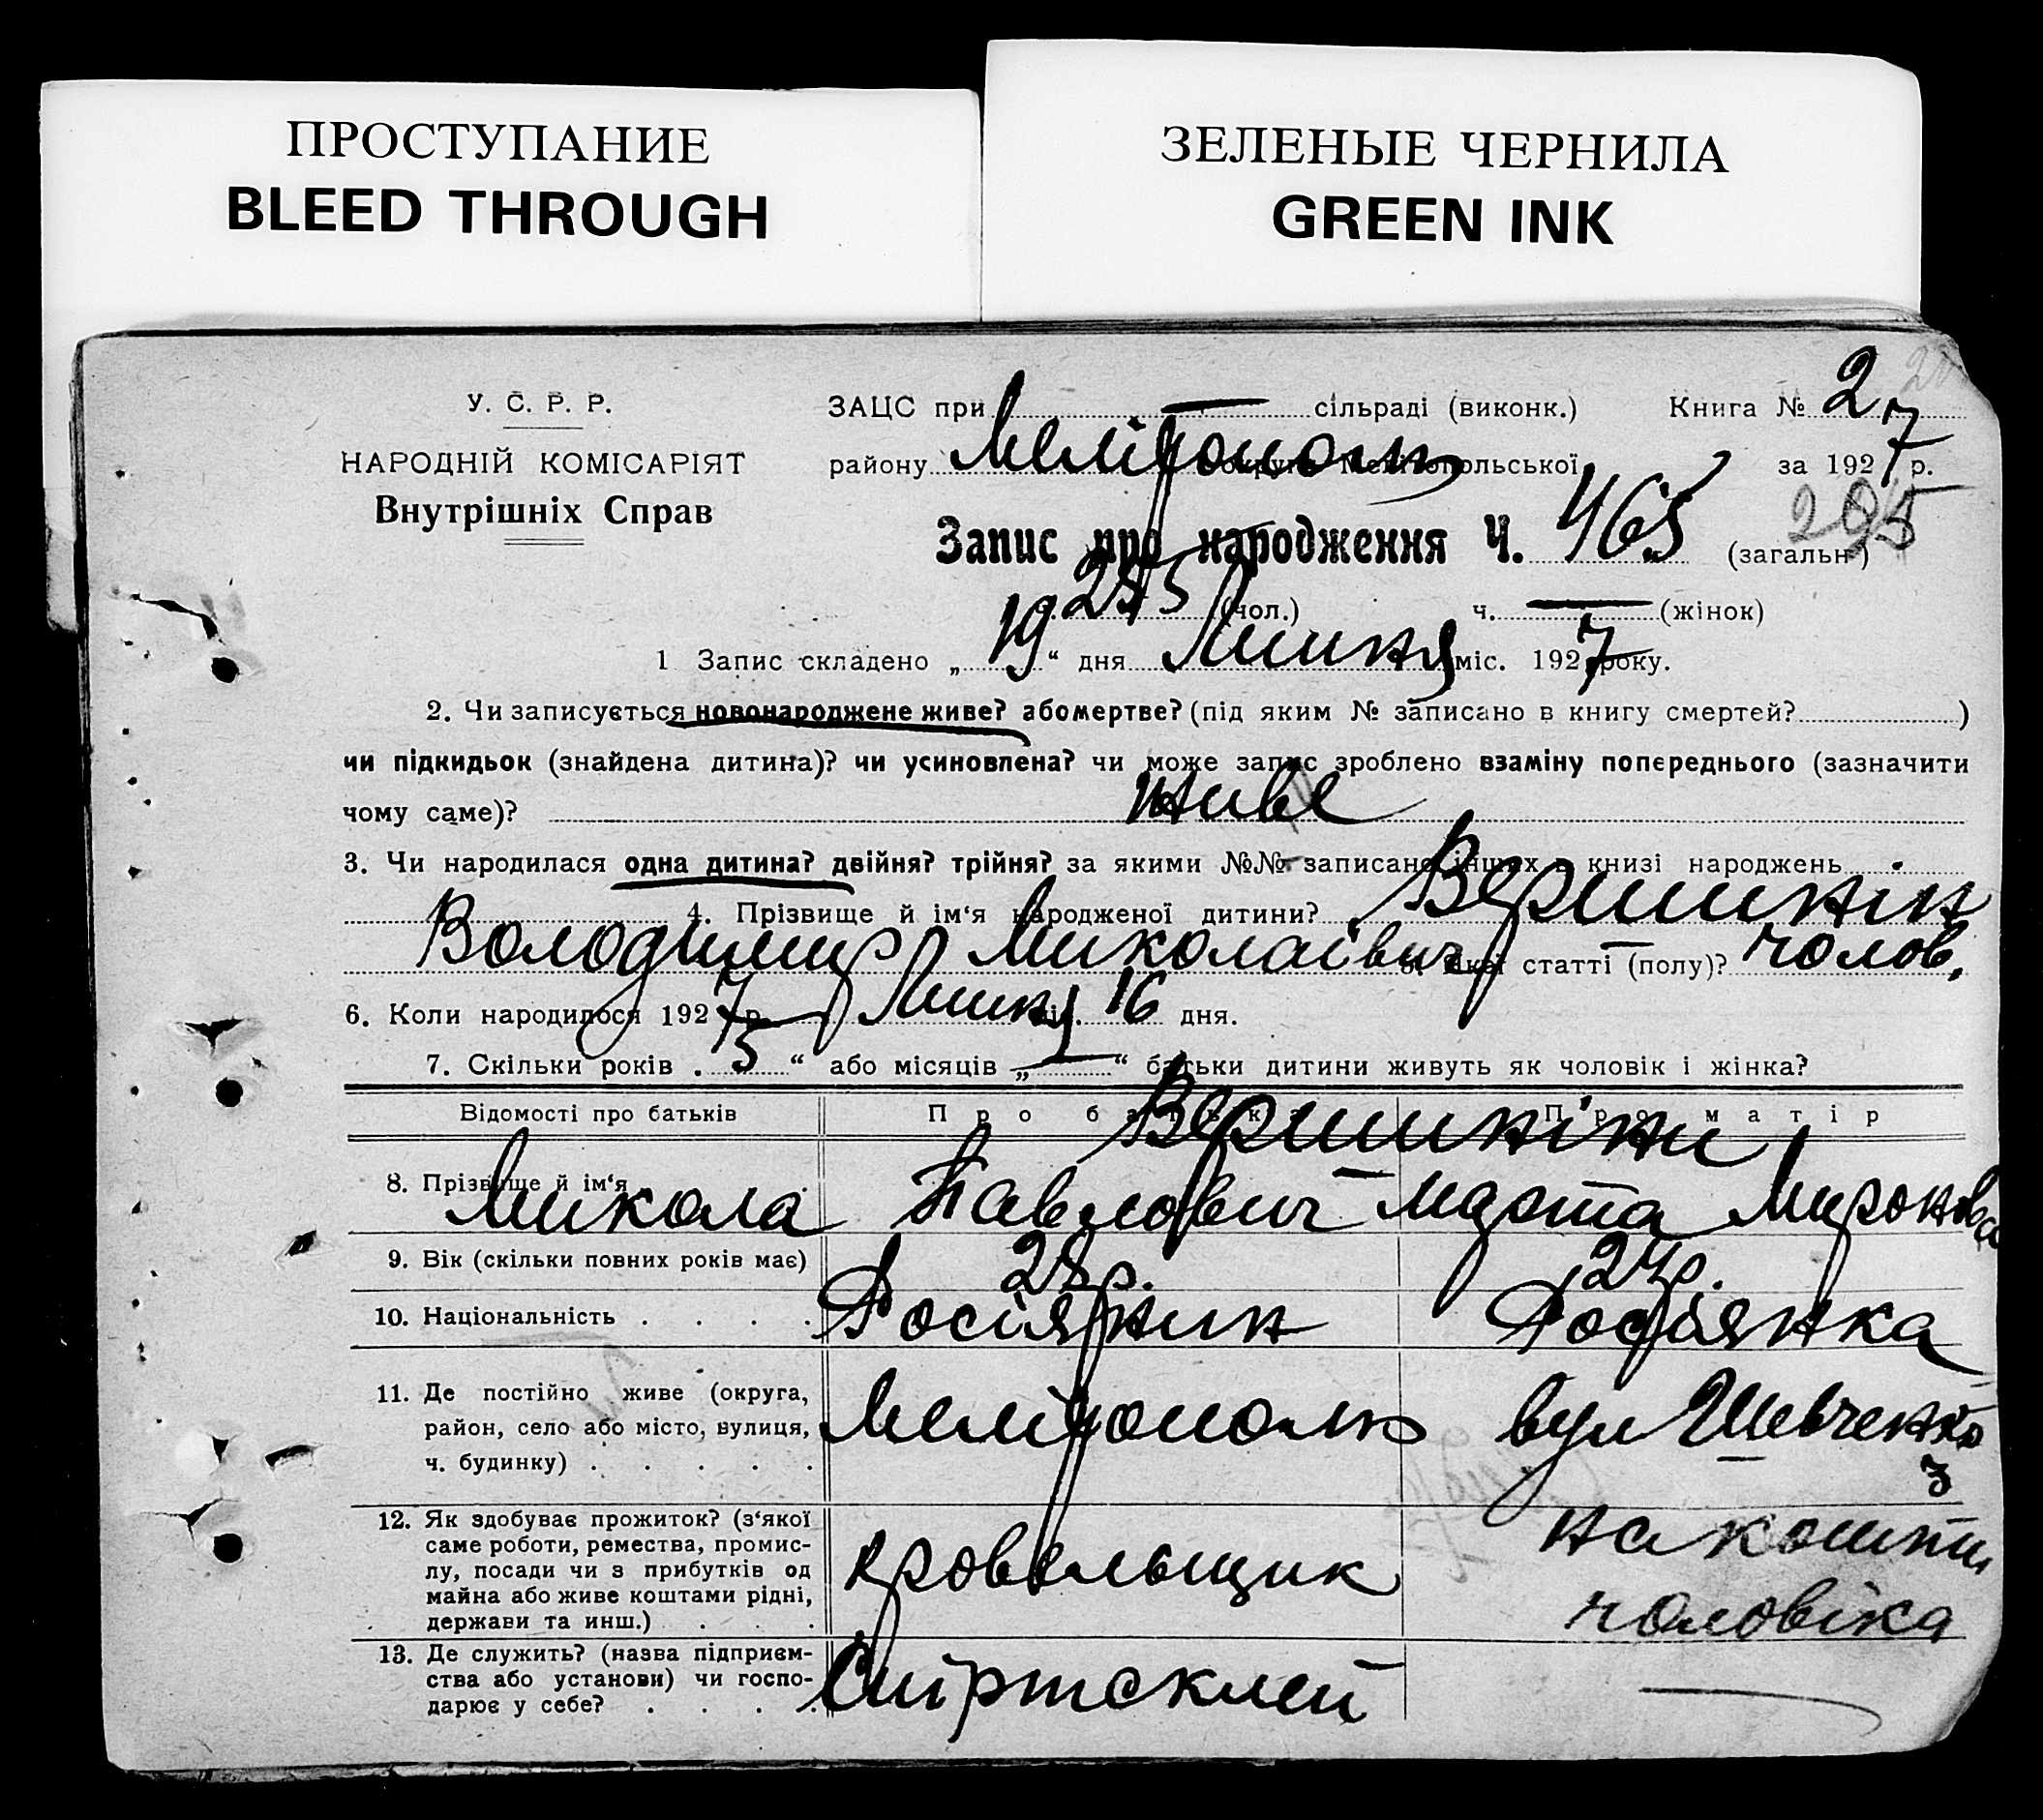 ПРОСТУПАНИЕ
BLEED THROUGH
ЗЕЛЕНЫЕ ЧЕРНИЛА
GREEN INK
У. С. Р. Р.
НАРОДНІЙ КОМІСАРІЯТ
Внутрішніх Справ
ЗАЦС при — сільраді (виконк.) Книга № 2
району Мелітополь округи Мелітопольської за 1927 р.
Запис про народження Ч. 465 (загальн.)
205
255 (чол.) ч. — (жінок)
1 Запис складено „19“ дня Липня міс. 1927 року.
2. Чи записується новонароджене живе? або мертве? (під яким № записано в книгу смертей? )
чи підкидьок (знайдена дитина)? чи усиновлена? чи може запис зроблено взаміну попереднього (зазначити
чому саме)? живе
3. Чи народилася одна дитина? двійня? трійня? за якими №№ записано інших в книзі народжень
4. Прізвище й ім‘я народженої дитини? Вершинін
Володимир Миколаівич 5. Якої статті (полу)? чолов.
6. Коли народилося 1927 р. Липня міс. 16 дня.
7. Скільки років „5“ або місяців „—“ батьки дитини живуть як чоловік і жінка?
Відомості про батьків Про батька Про матір
Вершиніни
8. Прізвище й ім‘я Микола Павлович Марта Миронова
9. Вік (скільки повних років має) 28 р. 24 р.
10. Національність . . . . Росіянин Росіянка
11. Де постійно живе (округа,
район, село або місто, вулиця,
ч. будинку) . . . . . Мелітополь вул Шевченко
3
12. Як здобуває прожиток? (з‘якої
саме роботи, ремества, промис-
лу, посади чи з прибутків од
майна або живе коштами рідні,
держави та инш.) . . . кровельщик на кошти
чоловіка
13. Де служить? (назва підприєм-
ства або установи) чи госпо-
дарює у себе? . . . . Спіртсклей —